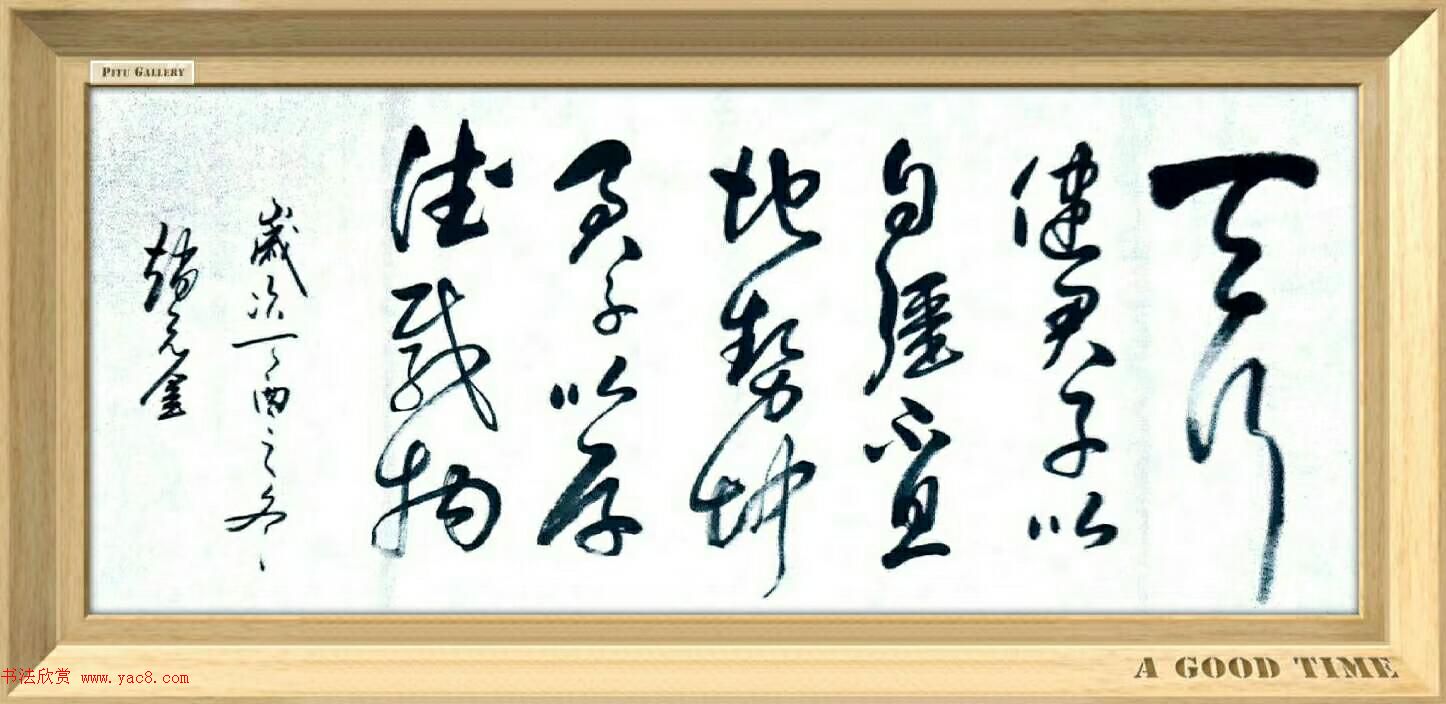 PITU GALLERY
天行
健君子以
自彊不息
地勢坤
君子以厚
德載物
歲次丁酉之冬
金
书法欣赏 www.yac8.com
A GOOD TIME